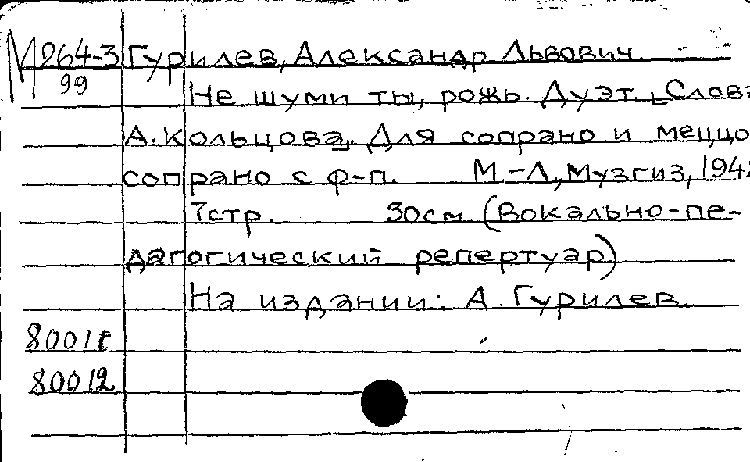 М 264-3 Гурилев, Александр Львович
99
Не шуми ты, рожь. Дуэт. Слова
А. Кольцова. Для сопрано и меццо
сопрано с ф-п. М-Л, Музгиз,
7стр. 30см (Вокально-пе-
дагогический репертуар)
На издании: А. Гурилев.
80012